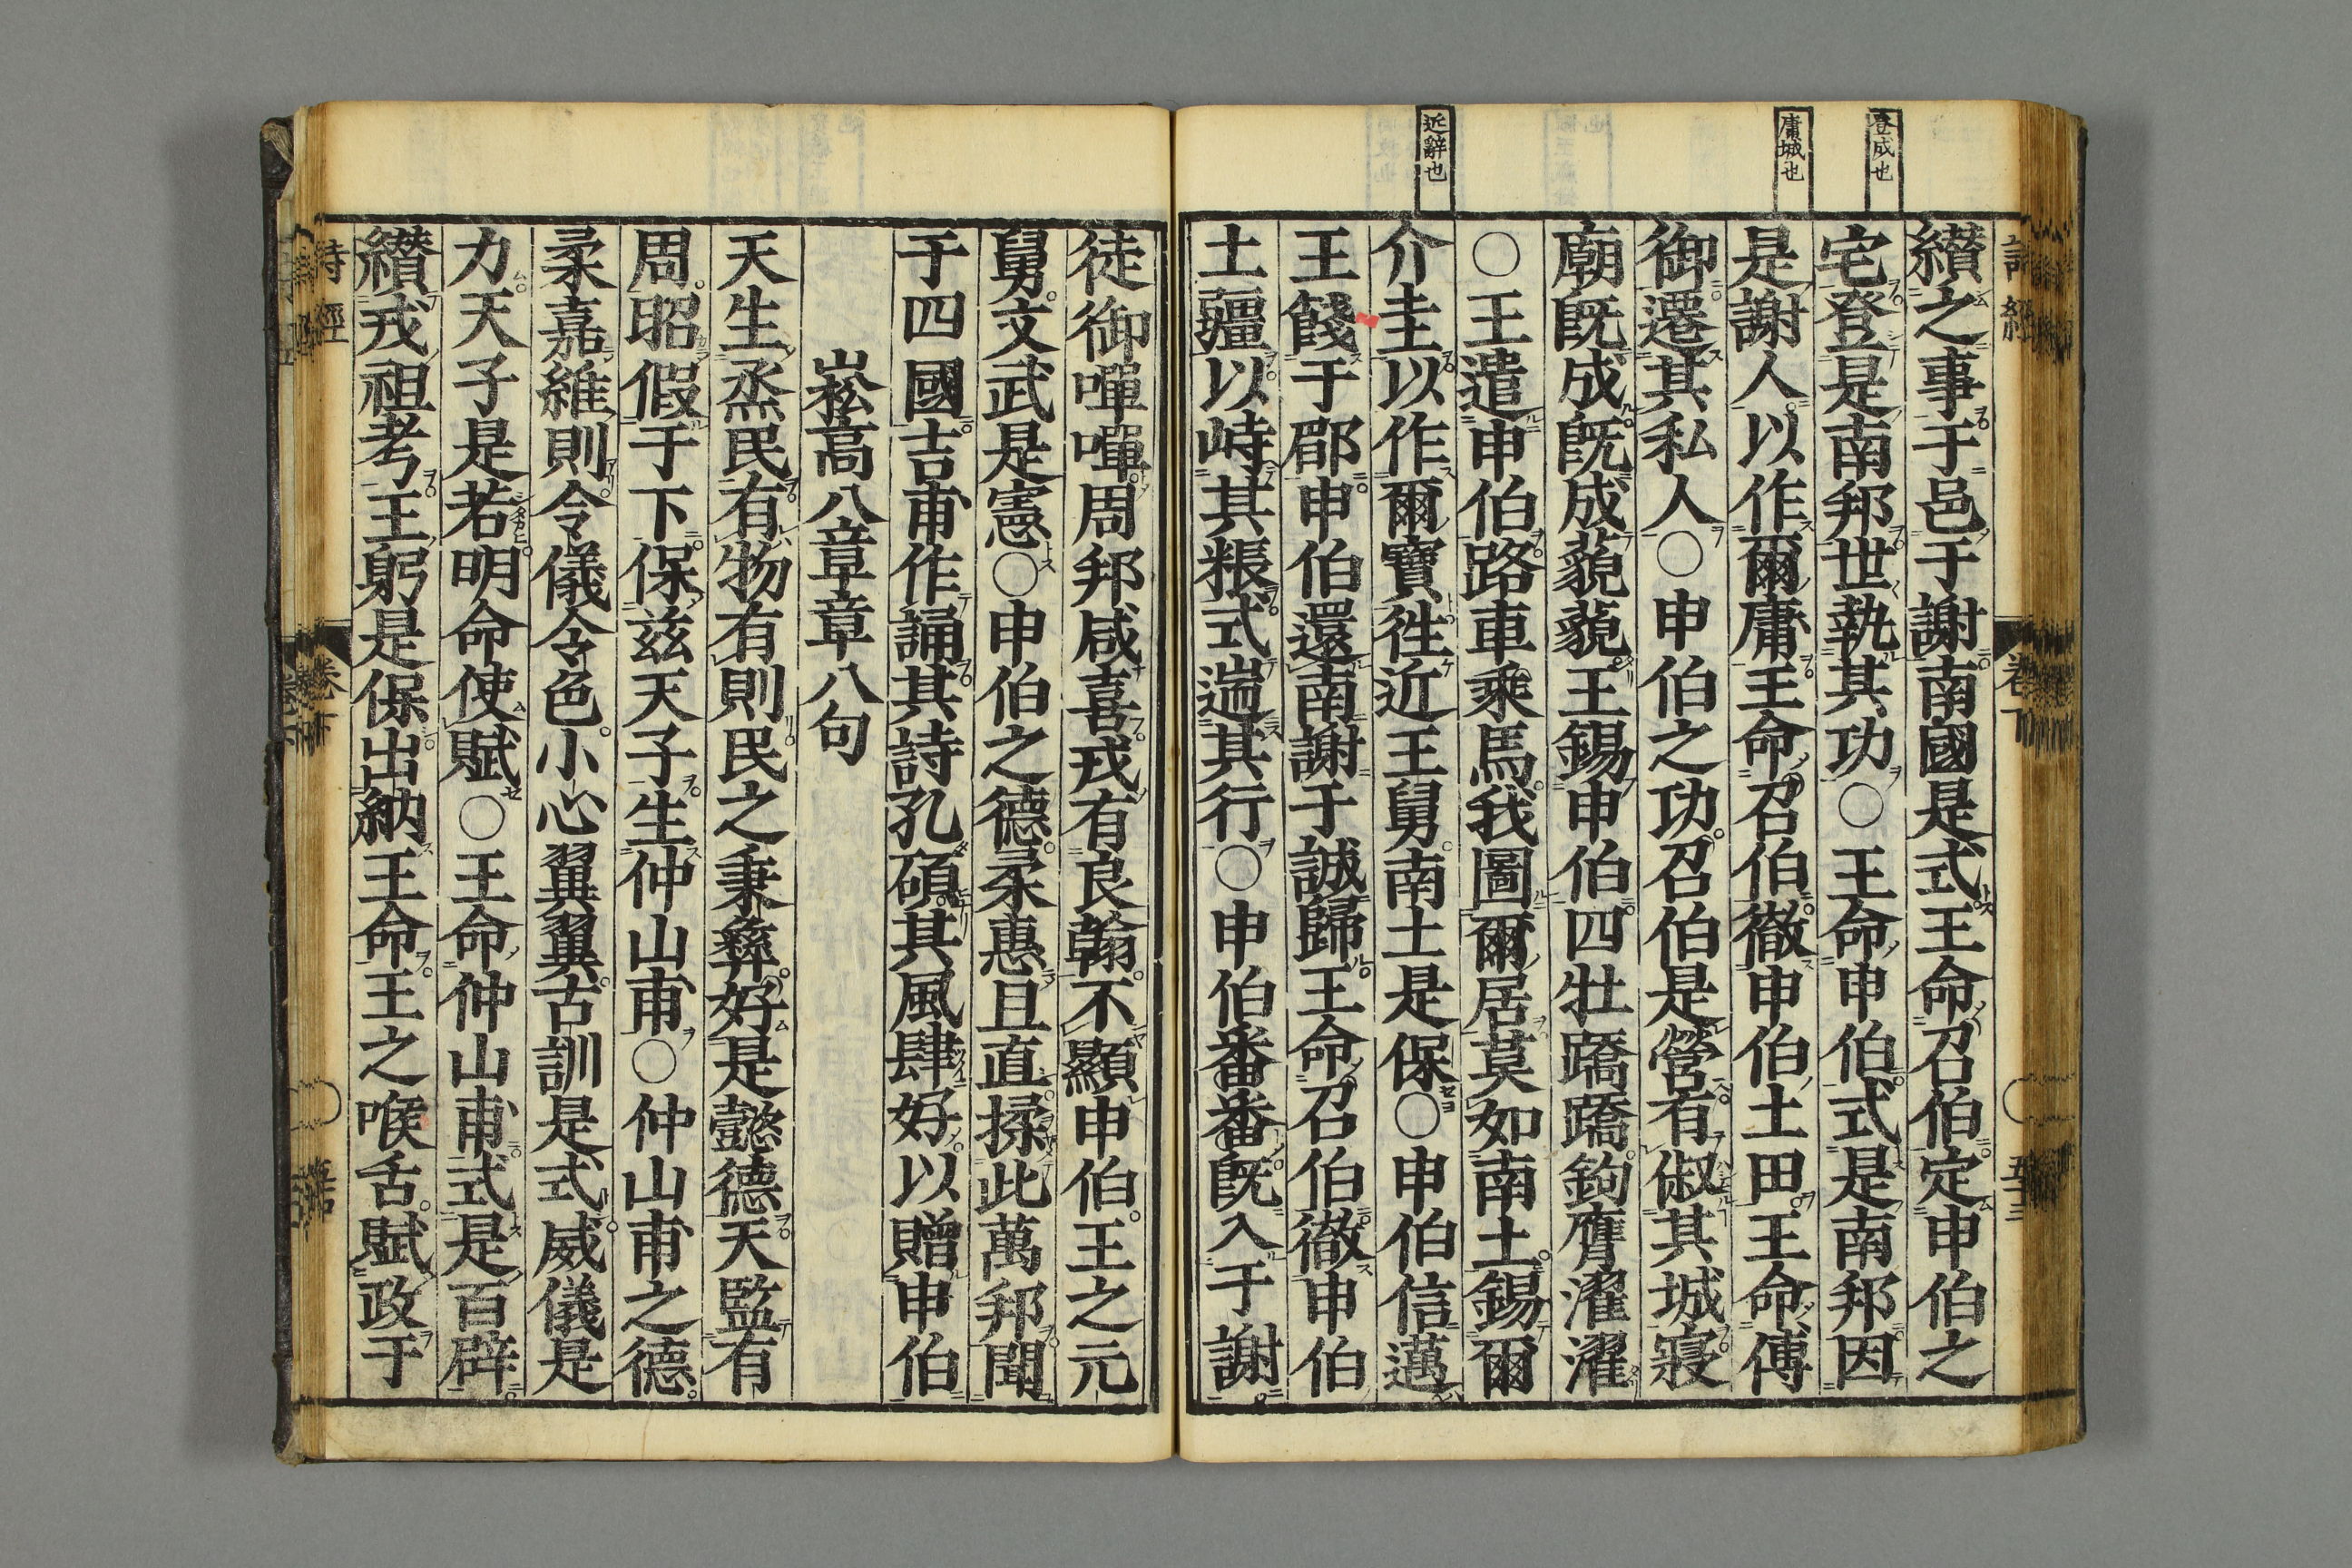 登成也
庸城也
近辭也
纉之事于邑于謝南國是式王命召伯定申伯之
宅登是南邦世執其功○王命申伯式是南邦因
是謝人以作爾庸王命召伯徹申伯土田王命傅
御遷其私人○申伯之功召伯是營有俶其城寢
廟既成既成藐藐王錫申伯四牡蹻蹻鉤膺濯濯
○王遣申伯路車乘馬我圖爾居莫如南土錫爾
介圭以作爾寶徃近王舅南土是保○申伯信邁
王餞于郿申伯還南謝于誠歸王命召伯徹申伯
土疆以峙其粻式遄其行○申伯番番既入于謝
徒御嘽嘽周邦咸喜戎有良翰不顯申伯王之元
舅文武是憲○申伯之德柔惠且直揉此萬邦聞
于四國吉甫作誦其詩孔碩其風肆好以贈申伯
崧高八章章八句
天生烝民有物有則民之秉彝好是懿德天監有
周昭假于下保茲天子生仲山甫○仲山甫之德
柔嘉維則令儀令色小心翼翼古訓是式威儀是
力天子是若明命使賦○王命仲山甫式是百辟
纉戎祖考王躬是保出納王命王之喉舌賦政于
詩經
卷下